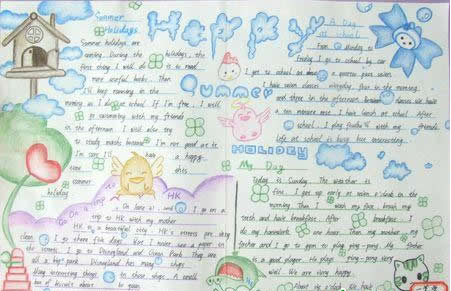 Summer
Holidays
Summer holidays are
coming. During the holidays, the
first thing I will do is to read
more useful books. Then
I'll keep running in the
morning as I do at school. If I'm free, I will
go swimming with my friends
in the afternoon. I will also try
to study maths because I'm not good at it.
I'm sure I'll have a happy
time this
summer
holiday
Happy
Summer
HOLIDAY
A Day
at school
From Monday to
Friday I go to school by car
I get to school at a quarter past seven.
I have seven classes everyday, four in the morning
and three in the afternoon between classes we have
a ten minutes rest I have lunch at school. After
school, I play with my friends
Life at school is busy but interesting.
My Day
Today is Sunday. The weather is
fine. I get up early at seven o'clock in the
morning. Then I wash my face brush my
teeth and have breakfast. After breakfast I
do my homework one hour. Then my mother, my
father and I go to gym to play ping-pong. My father
is a good player. He plays ping-pong very
well. We are very happy.
About his a day. We have
Go On a Trip to HK
In June 21, and I go on a
trip to HK with my mother
HK is a beautiful city. HK's streets are very
clean. I go to there five days. But I never see a paper in
the street. I go to Disneyland and Ocean Park. They are
all a big park. Disneyland has many shops
Many interesting things in these shops. A small
box of biscuit about to yuan.